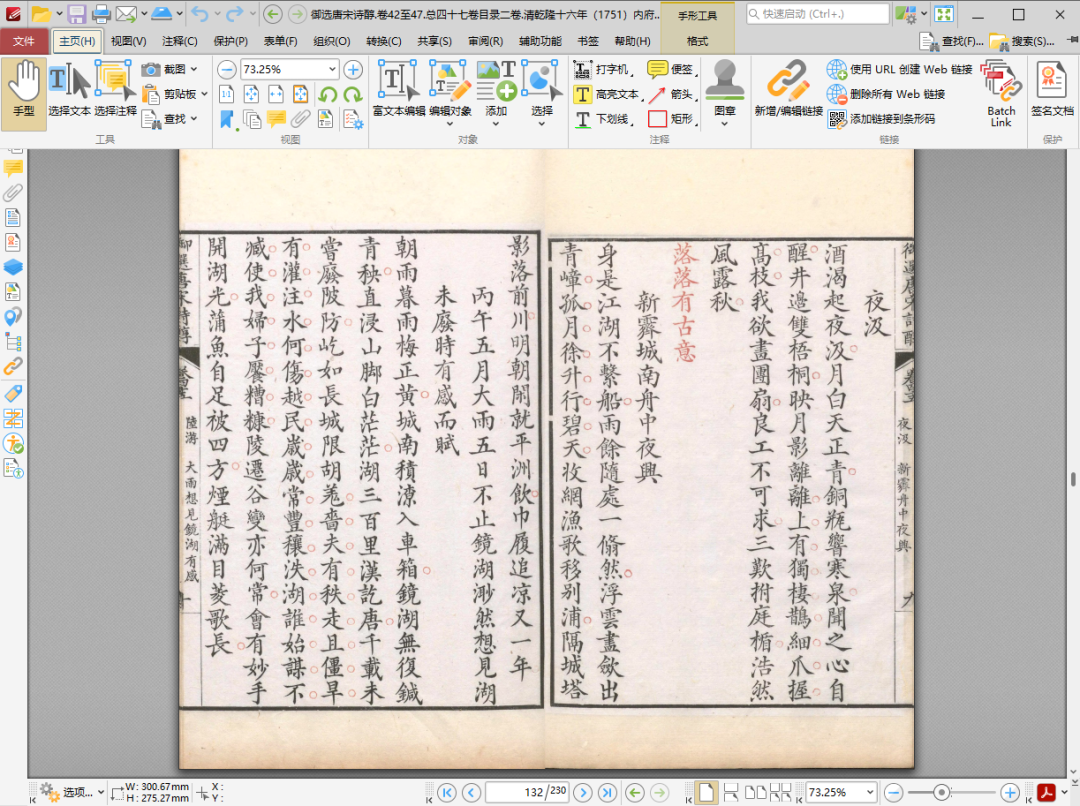 御选唐宋诗醇.卷42至47.总四十七卷目录二卷.清乾隆十六年（1751）内府..
手形工具
快速启动 (Ctrl+.)
文件 主页(H) 视图(V) 注释(C) 保护(P) 表单(F) 组织(O) 转换(C) 共享(S) 审阅(R) 辅助功能 书签 帮助(H) 格式 查找(F)... 搜索(S)...
手型 选择文本 选择注释
截图
剪贴板
查找
工具
73.25%
1:1
视图
富文本编辑 编辑对象 添加 选择
对象
打字机
高亮文本
下划线
便签
箭头
矩形
图章
注释
新增/编辑链接
使用 URL 创建 Web 链接
删除所有 Web 链接
添加链接到条形码
Batch Link
链接
签名文档
保护
夜汲
酒渴起夜汲月白天正青銅瓶響寒泉聞之心自
醒井邊雙梧桐映月影離離上有獨棲鵲細爪握
高枝我欲畫團扇良工不可求三歎拊庭楯浩然
風露秋
落落有古意
新霽城南舟中夜興
身是江湖不繫船雨餘隨處一翛然浮雲盡斂出
青嶂孤月徐升行碧天收網漁歌移别浦隔城塔
夜汲 新霽舟中夜興
九
影落前川明朝閙就平洲飲巾履追凉又一年
丙午五月大雨五日不止鏡湖渺然想見湖
未廢時有感而賦
朝雨暮雨梅正黃城南積潦入車箱鏡湖無復鍼
青秧直浸山脚白茫茫湖三百里漢訖唐千載未
嘗廢陂防屹如長城限胡羌嗇夫有秩走且僵旱
有灌注水何傷越民歲歲常豐穰泆湖誰始謀不
臧使我婦子饜糟糠陵遷谷變亦何常會有妙手
開湖光蒲魚自足被四方煙艇滿目菱歌長
陸游 大雨想見鏡湖有感
选项...
W: 300.67mm
H: 275.27mm
X:
Y:
132/230
73.25%